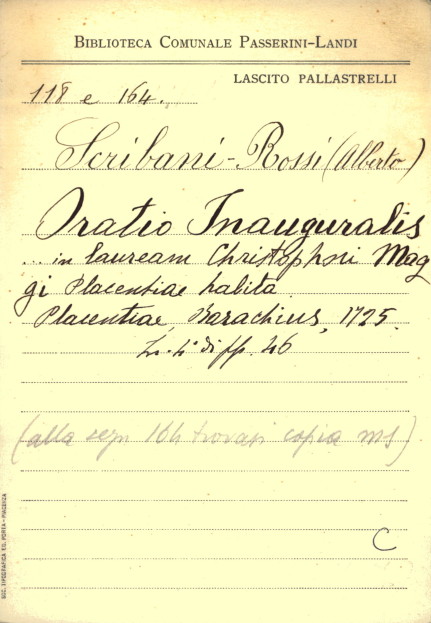 BIBLIOTECA COMUNALE PASSERINI-LANDI
LASCITO PALLASTRELLI
118 e 164.
Scribani-Rossi (Alberto)
Oratio Inauguralis
... in lauream Christophori Mag
gi Placentiae habita
Placentiae, Barachius, 1725.
In-4° di pp. 26
(alla segn 164 trovasi copia ms)
C
SOC. TIPOGRAFICA ED. PORTA-PIACENZA